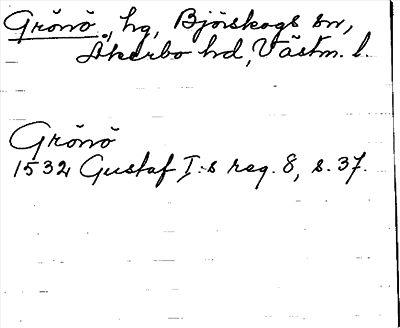 Grönö, hg, Björskogs sn,
Åkerbo hd, Västm. l.
Grönö
1532 Gustaf I:s reg. 8, s. 37.